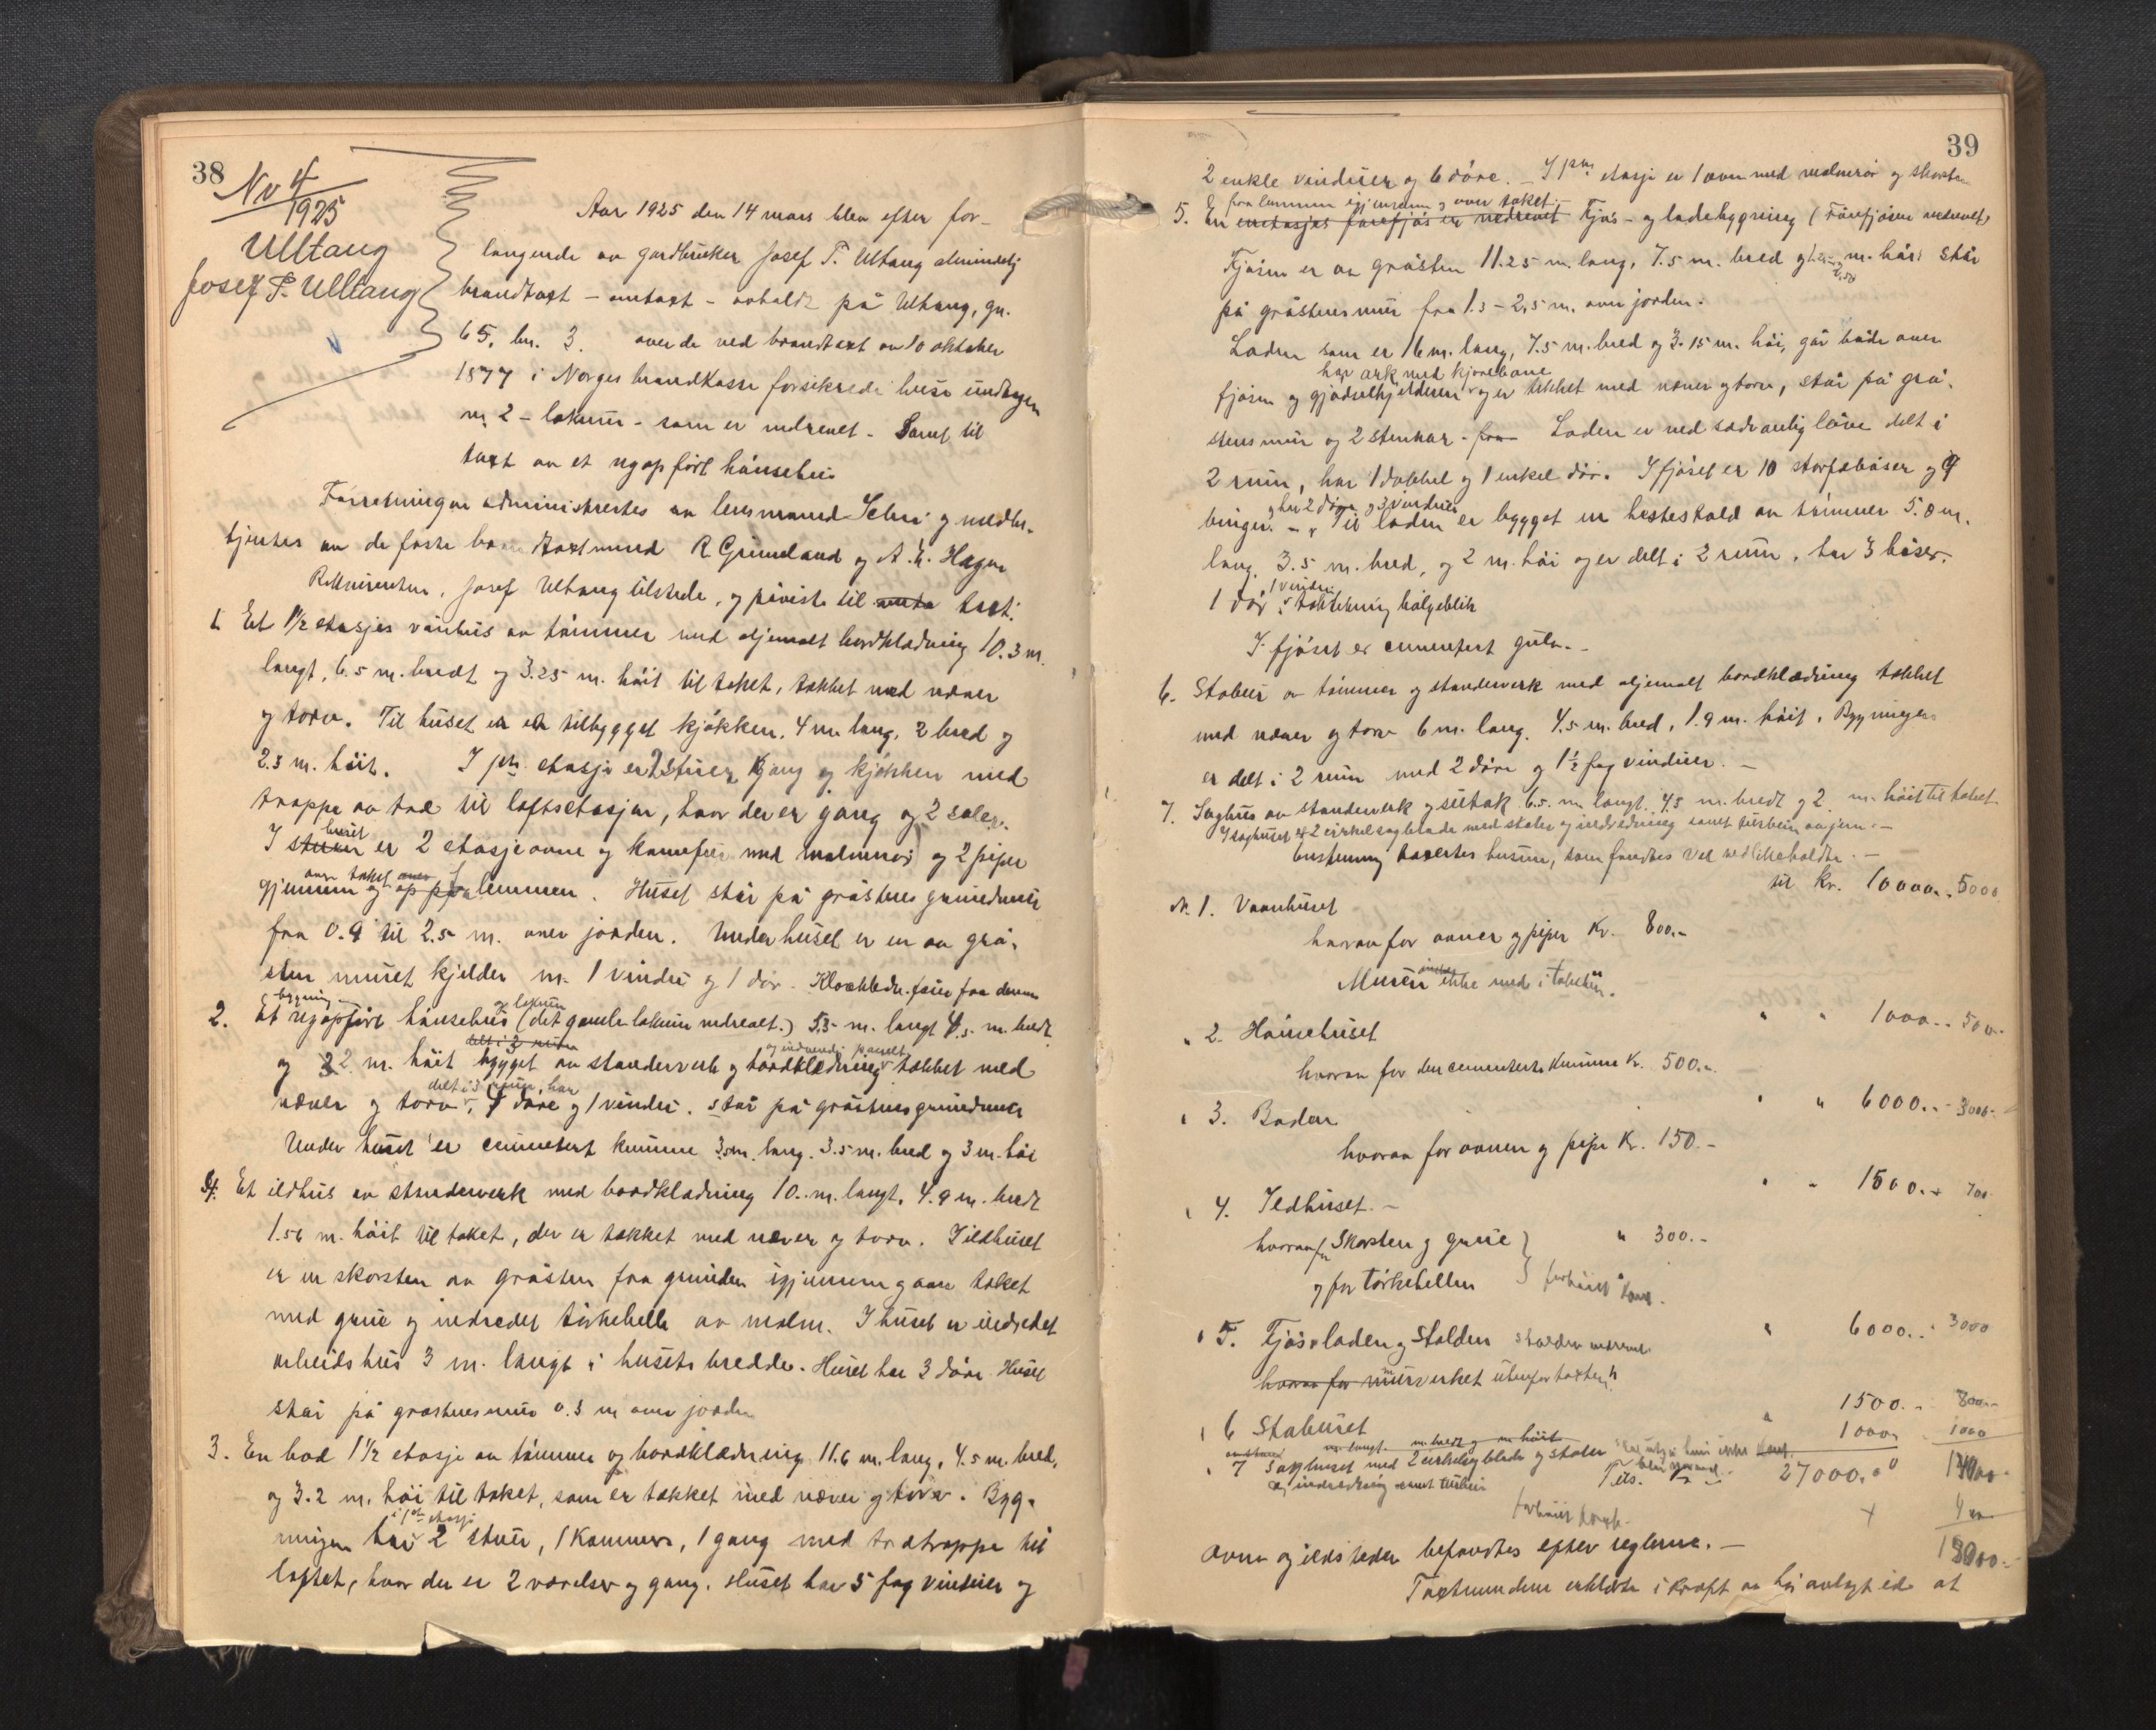 38
No 4/1925
Ulltang
Josef P. Ulltang
Aar 1925 den 14 mars blev efter for-
langende av gardbruker Josef P. Ultang almindelig
brandtaxt – omtaxt – avholdt på Ultang, gn.
65, bn. 3. over de ved brandtaxt av 10 oktober
1877 i Norges brandkasse forsikrede huse undtagen
nr. 2 – lokum – som er nedrevet – Samt til
taxt av et nyopført hønsehus
Forretningen administrertes av lensmand Sehri og medbe-
tjentes av de faste taxtmænd R. Grimeland og A. K. Hagen
Rekvirenten, Josef Ultang tilstede, og påviste til taxt:
1. Et 1½ etasjes vånhus av tømmer med oljemalt bordklædning 10.3 m.
langt, 6.5 m. bredt og 3.25 m. høit til taket, tækket med næver
og torv. Til huset er et tilbygget kjøkken, 4 m lang, 2 bred og
2.3 m. høit. I 1ste etasje er 2 stuer, gang og kjøkken med
trappe av træ til loftsetasjen, hvor der er gang og 2 saler.
huset
I stuen er 2 etasjeovne og kaminfuie med malmrør og 2 piper
over taket
gjennem og op på lemmen. Huset står på gråstens grundmur
fra 0.9 til 2.5 m. over jorden. Under huset er en av grå-
sten muret kjelder m. 1 vindu og 1 dør.
bygning og lokum
2. Et nyopført hønsehus (det gamle lokum nedrevet.) 5.5 m. langt 4.5 m. bredt
delt i 3 rum og indvendig panelt
og 2 m. høit bygget av standerverk og bordklædning tækket med
delt i 3 rum, har
næver og torv, 4 døre og 1 vindu. står på gråstens grundmur
Under huset er cementert kumme 3.5 m. lang. 3.5 m. bred og 3 m. høi
4. Et ildhus av standerverk med bordklædning 10. m. langt, 4.9 m. bredt
1.56 m. høit til taket, der er tækket med næver og torv. I ildhuset
er en skorsten av gråsten fra grunden igjennem og over taket
med grue og indredet tørkehelle av malm. I huset er indredet
arbeidshus 3 m. langt i husets bredde. Huset har 3 døre. Huset
står på gråstensmur 0.3 m over jorden
3. En bod 1½ etasje av tømmer og bordklædning 11.6 m. lang, 4.5 m. bred,
og 3.2 m. høi til taket, som er tækket med næver og torv. Byg-
i 1ste etasje
ningen har 2 stuer, 1 kammers, 1 gang med trætrappe til
loftet, hvor der er 2 værelser og gang. Huset har 5 fag vinduer og
39
2 enkle vinduer og 6 døre. – I 1ste etasje er 1 ovn med malmrør og skorsten
fra lemmen igjennem og over taket.
5. En enetasjes fårefjøs er nedrevet Fjøs- og ladebygning (Fårefjøsen nedrevet)
Fjøsen er av gråsten 11.25 m. lang, 7.5 m. bred og m. høi: står
på gråstensmur fra 1.3 – 2.5 m. over jorden.
Laden som er 16 m. lang, 7.5 m. bred og 3.15 m. høi, går både over
har ark med kjørebane
fjøsen og gjødselkjelderen og er tækket med næver og torv, står på grå-
stens mur og 2 stenkar. – Laden er ved sædvanlig låve delt i
2 rum, har 1 dobbel og 1 enkel dør. I fjøset er 10 storfæbåser og 9
har 2 døre og 3 vinduer
binger. – Til laden er bygget en hestestald av tømmer 5.0 m.
lang, 3.5 m. bred, og 2 m. høi og er delt i 2 rum, har 3 båser,
1 vindu
1 dør, taktækning bølgeblik
I fjøset er cementert gulv.
6. Stabur av tømmer og standerverk med oljemalt bordklædning tækket
med næver og torv 6 m. lang. 4.5 m. bred, 1.9 m. høit. Bygningen
er delt i 2 rum med 2 døre og 1½ fag vinduer. –
7. Saghus av standerverk og sutak 6.5 m langt. 4.5 m. bredt og 2 m. høit til taket.
I saghuset er 2 cirkelsagblade med stoler og indredning samt turbin av jern. –
taxertes husene, som fandtes vel vedlikeholdte. –
til kr. 10000.- 5000
Nr. 1. Vaanhuset
hvorav for ovner og piper Kr. 800.-
Muren ikke med i taksten.
" 2. Hønsehuset " " 1000.- 500.-
hvorav for den cementerte kumme Kr. 500.-
" 3. Boden " " 6000.- 3000.-
hvorav for ovnen og pipe Kr. 150.-
" 4. Ildhuset. – " " 1500.- 700
hvorav for Skorsten og grue } " 300.-
og for tørkehellen
" 5. Fjøs, laden og Stalden " 6000.- 3000
hvorav for murverket utenfor taxten
" 6 Staburet " 1500.- 800.-
m. langt. m. bredt og m. høit
" 7 Saghuset med 2 cirkelsagblade og stoler 1000. 1000
og indredning samt turbin
Tils. Kr. 27000.00
Ovne og ildsteder befandtes efter reglerne. –
Taxtmændene erklærte i kraft av før avlagt ed at